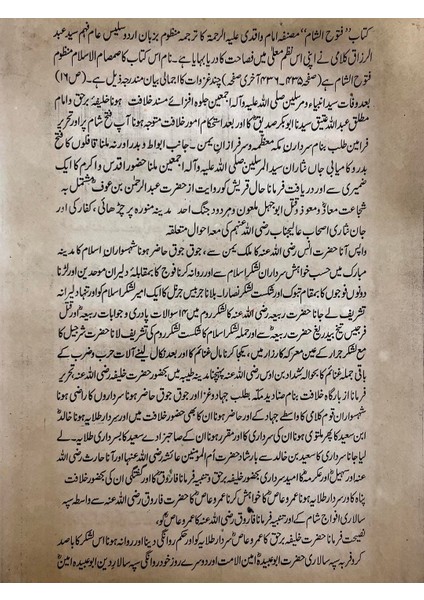 کتاب "فتوح الشام" مصنفہ امام واقدی علیہ الرحمۃ کا ترجمہ منظوم بزبان اردو سلیس عام فہم سید عبد
الرزاق کلامی نے اپنی اس نظم معلی میں فصاحت کا دریا بہایا ہے۔ نام اس کتاب کا صمصام الاسلام منظوم
فتوح الشام ہے (صفحہ ۴۳۵۔ ۴۳۶ آخری صفحہ) چند غزوات کا اجمالی بیان مندرجہ ذیل ہے۔ (ص ۱۶)
بعد وفات سید انبیاء و مرسلین صلی اللہ علیہ و آلہ اجمعین جلوہ افزائے مسند خلافت ہونا خلیفہ برحق و امام
مطلق عبد اللہ عتیق سیدنا ابوبکر صدیقؓ کا اور بعد استحکام امور خلافت متوجہ ہونا آپ فتح شام پر اور تحریر
فرمانا طلب بنام سرداران مکہ معظمہ و سرفرازان یمن۔ جانب ابواط و بدر اور نہ ملنا قافلوں کا فتح
بدر و کامیابی جاں نثاران سید المرسلین صلی اللہ علیہ و آلہ اجمعین ملنا حضور اقدس و اکرم کا ایک
ضمیری سے اور دریافت فرمانا حال قریش کو روایت از حضرت عبد الرحمٰن بن عوفؓ مشتمل بہ
شجاعت معاذؓ و معوذؓ و قتل ابوجہل ملعون و مردود جنگ احد مدینہ منورہ پر چڑھائی، کفار کی اور
جان نثاری اصحاب عالیجناب رضی اللہ عنہم کی معہ احوال متعلقہ
واپس آنا حضرت انس رضی اللہ عنہ کا ملک یمن سے، جوق جوق حاضر ہونا شہسواران اسلام کا مدینہ
مبارک میں حسب خواہش سرداران لشکر اسلام سے اور روانہ کرنا فوج کا بمقابلہ دلیران موحدین اور لڑنا
دونوں فوجوں کا بمقام تبوک اور شکست لشکر نصارا۔ بلانا جرجیس جرنل کا ایک امیر لشکر اسلام کو اور تنہا دلیرانہ
تشریف لے جانا حضرت ربیعہؓ سے اور شکست لشکر روم میں ۱۳ سوالات پادری و جوابات ربیعہؓ اور قتل
جرجیس تیغ بیدریغ حضرت ربیعہؓ سے اور حملہ لشکر اسلام کا اور شکست لشکر روم کی تشریف لانا حضرت شرجیلؓ کا
مع لشکر جرار کے عین معرکہ کارزار میں، یکجا کرنا مال غنائم کا اور بعد نکال لینے آلات حرب و ضرب کے
باقی جملہ غنائم کا بحوالہ شداد بن اوس رضی اللہ عنہ پہنچنا مدینہ طیبہ میں بحضور حضرت خلیفہ رضی اللہ عنہ تحریر
فرمانا از بارگاہ خلافت بنام صنادید مکہ بطلب جہاد و غزا اور جوق جوق حاضر ہونا سرداروں اور
شہسواران قوم کلامی کا واسطے جہاد کے اور حاضر ہونا ان کا بھی حضور خلافت میں اور سردار طلایہ ہونا خالدؓ
ابن سعید کا پھر ملتوی ہونا ان کی سرداری کا اور مقرر ہونا ان کے صاحبزادے سعید کا بسرداری طلایہ۔ لے
لیا جانا سرداری کا سعید بن خالد سے بارشاد حضرت ام المومنین عائشہ رضی اللہ عنہا اور آنا حارث رضی اللہ
عنہ اور سہیلؓ اور عکرمہؓ کا امید سرداری بحضور خلیفہ برحق و تنبیہ فرمانا فاروقؓ کا اور گفتگی ان کی بحضور خلافت
پناہ کا و سردار طلایہ ہونا عمرو عاصؓ کا خواہش کرنا عمرو عاصؓ کا حضرت فاروق رضی اللہ عنہ سے واسطے سپہ
سالاری افواج شام کے اور تنبیہ فرمانا فاروق رضی اللہ عنہ کا عمرو عاصؓ کو۔
نصیحت فرمانا حضرت خلیفہ برحق کا عمرو عاصؓ سردار طلایہ کو اور حکم روانگی دینا اور روانہ ہونا اس لشکر کا باصد
کروفر بہ سپہ سالاری حضرت ابوعبیدہؓ امین الامت اور دوسرے روز خود روانگی سپہ سالار دین ابوعبیدہ امینؓ